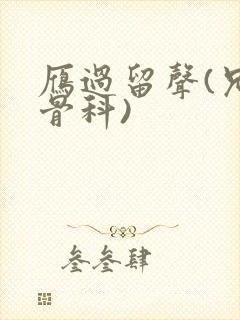 雁過留聲(兄
骨科)
叁叁肆